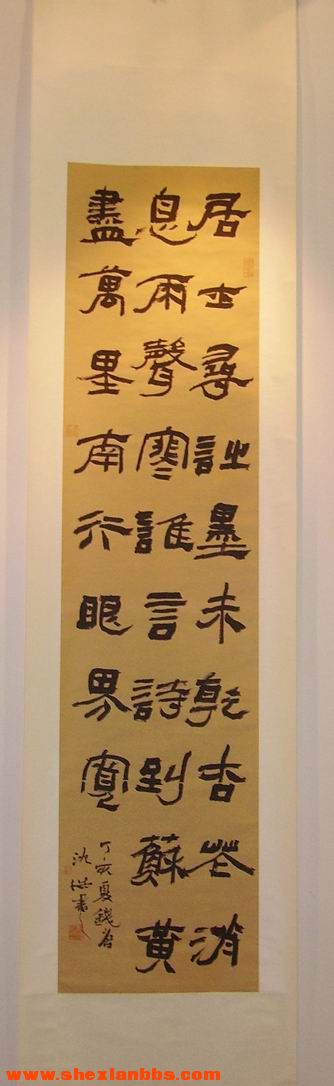 居士尋詩墨未乾杏花消
息雨聲寒誰言詩到蘇黃
盡萬里南行眼界寬
丁亥夏
www.shexianbbs.com